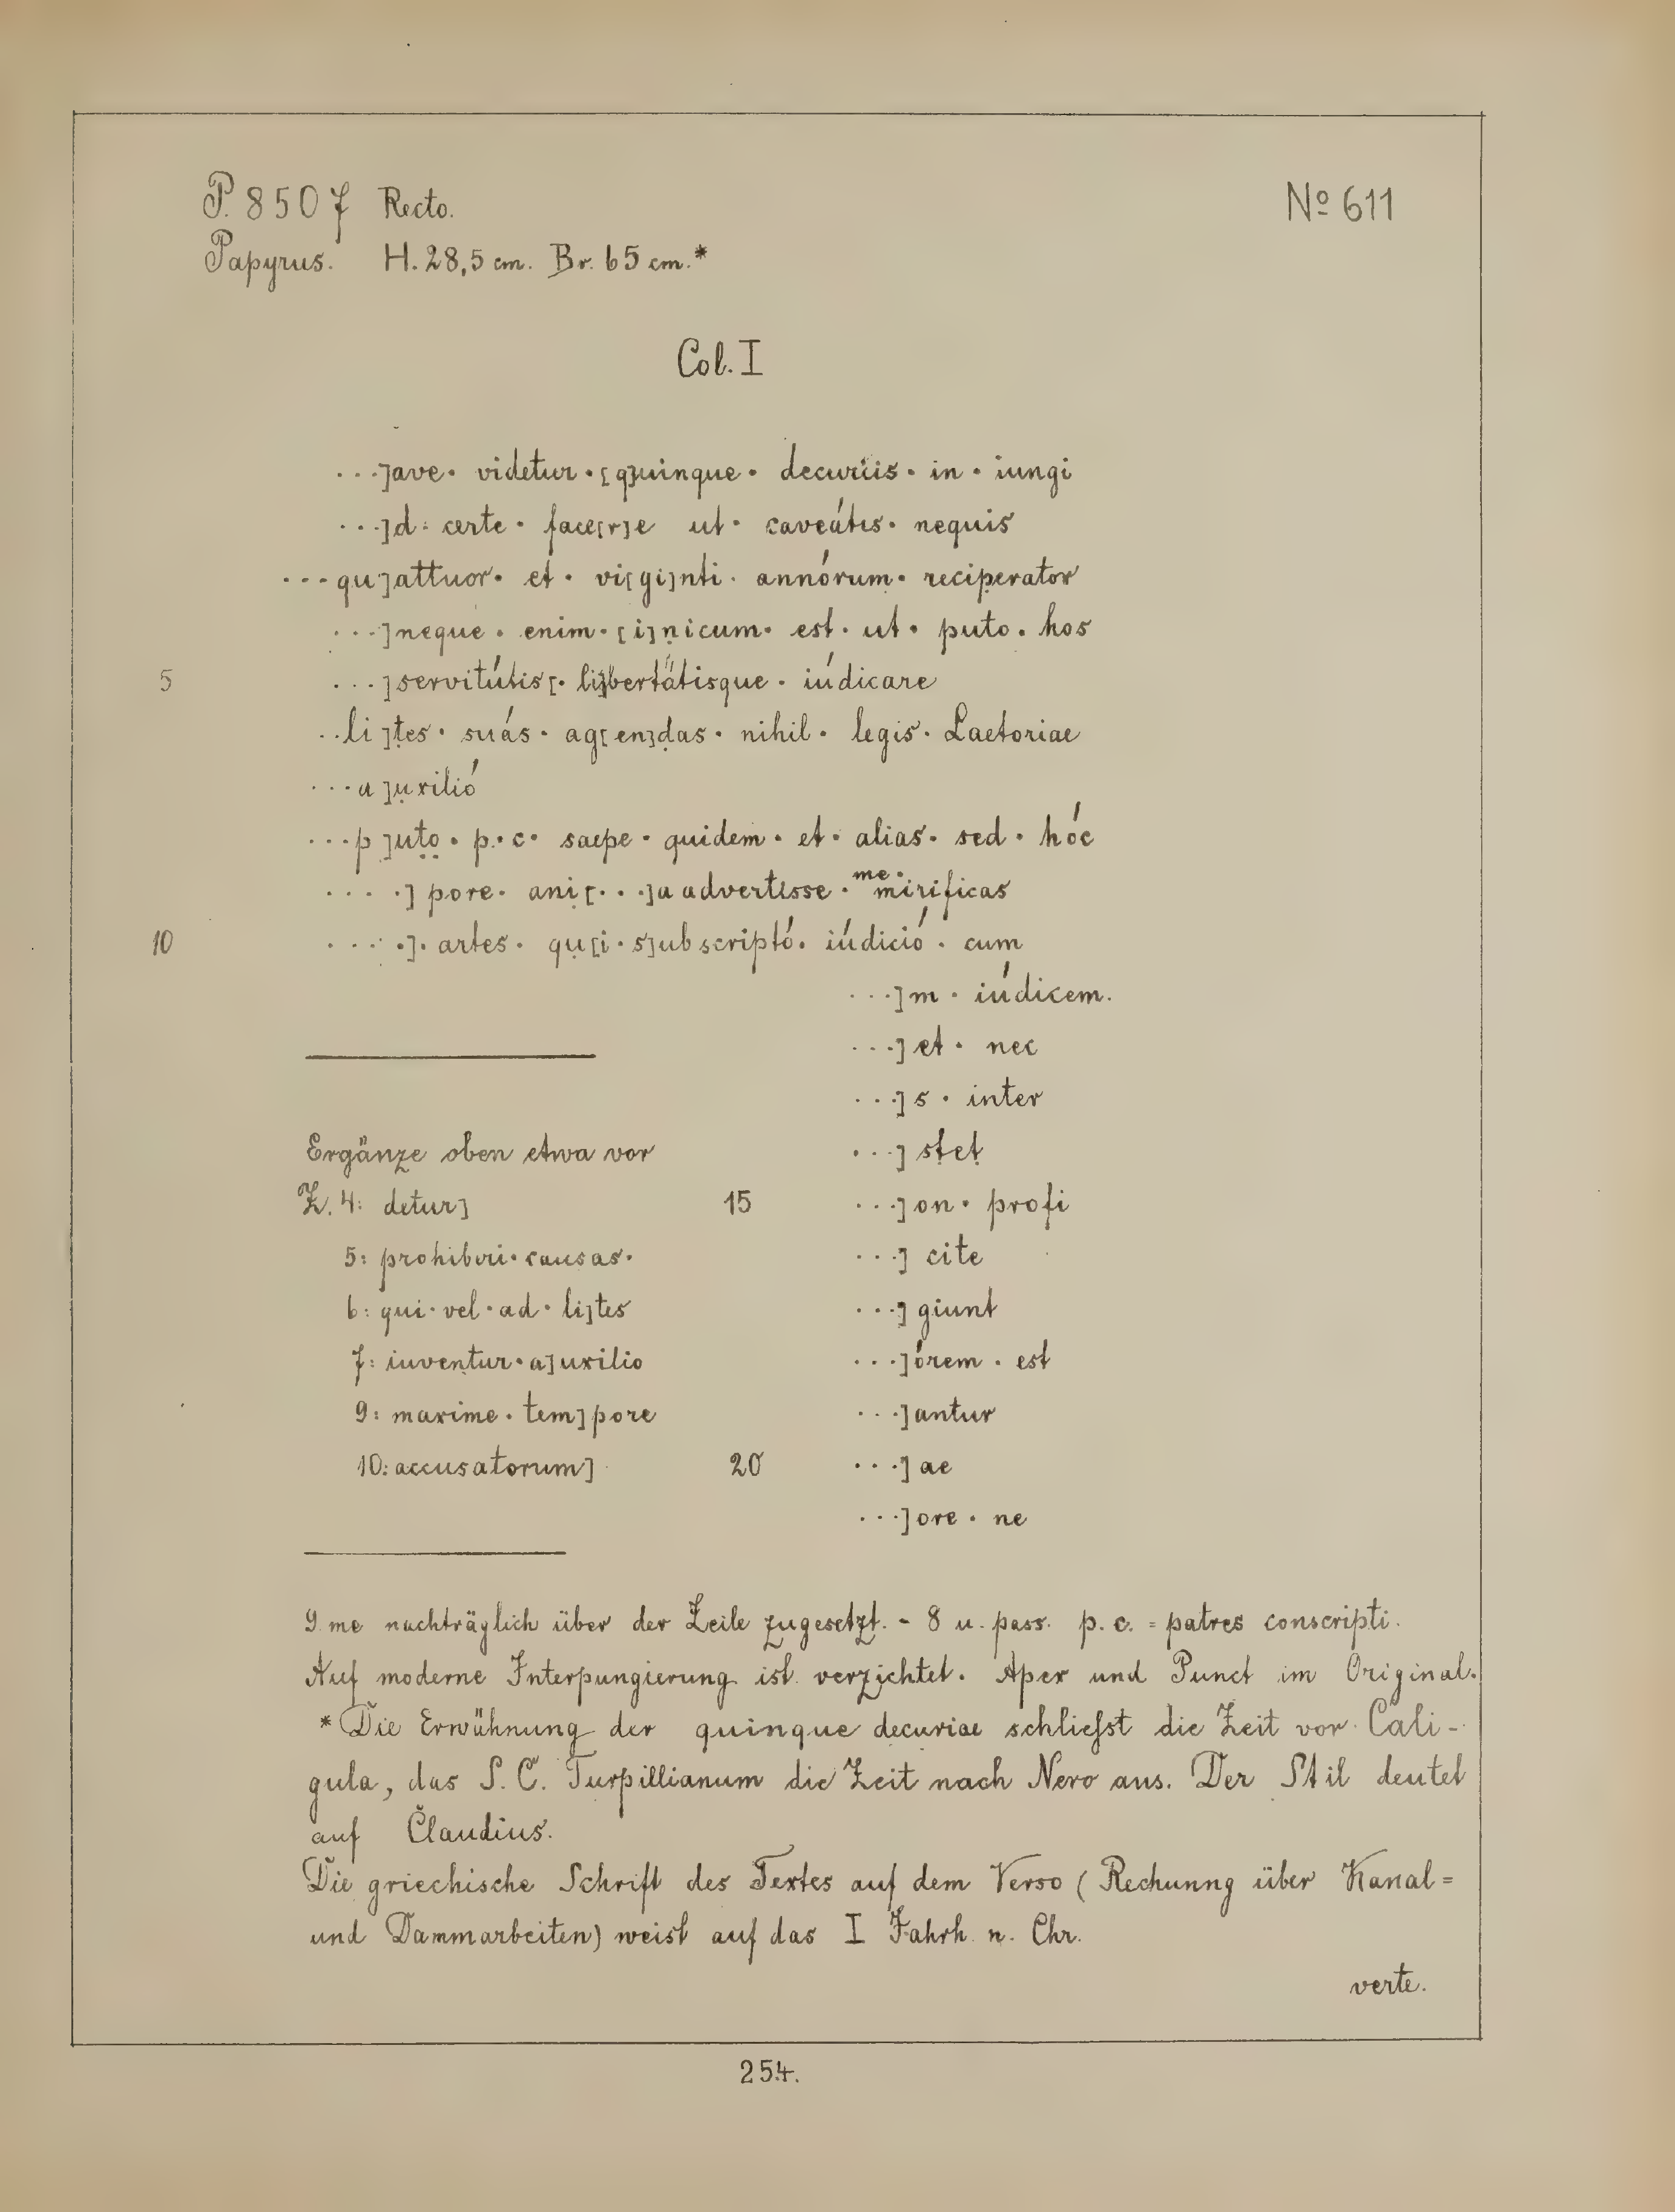 P. 8507 Recto. Nº 611
Papyrus. H. 28,5 cm. Br. 65 cm.*
Col. I
...]ave · videtur · [q]uinque · decuriis · in · iungi
...]d · certe · face[r]e ut · caveátis · nequis
...qu]attuor · et · vi[gi]nti · annórum · reciperator
...]neque · enim · [i]nicum · est · ut · puto · hos
5 ...]servitútis[· li]bertátisque · iúdicare
..li]tes · suás · ag[en]das · nihil · legis · Laetoriae
...a]uxilió
...p]uto · p · c · saepe · quidem · et · alias · sed · hóc
.....]pore · ani[...]a advertisse · me · mirificas
10 .....]· artes · qu[i · s]ubscriptó · iúdició · cum
...]m · iúdicem.
...]et · nec
...]s · inter
...]stet
15 ...]on · profi
...]cite
...]giunt
...]órem · est
...]antur
20 ...]ae
...]ore · ne
Ergänze oben etwa vor
Z. 4: detur]
5: prohiberi · causas ·
6: qui · vel · ad · li]tes
7: iuventur · a]uxilio
9: maxime · tem]pore
10: accusatorum]
9 me nachträglich über der Zeile zugesetzt. - 8 u. pass. p. c. = patres conscripti.
Auf moderne Interpungierung ist verzichtet. Apex und Punct im Original.
* Die Erwähnung der quinque decuriae schliefst die Zeit vor Cali-
gula, das S. C. Turpillianum die Zeit nach Nero aus. Der Stil deutet
auf Claudius.
Die griechische Schrift des Textes auf dem Verso (Rechnung über Kanal=
und Dammarbeiten) weist auf das I Jahrh. n. Chr.
verte.
254.